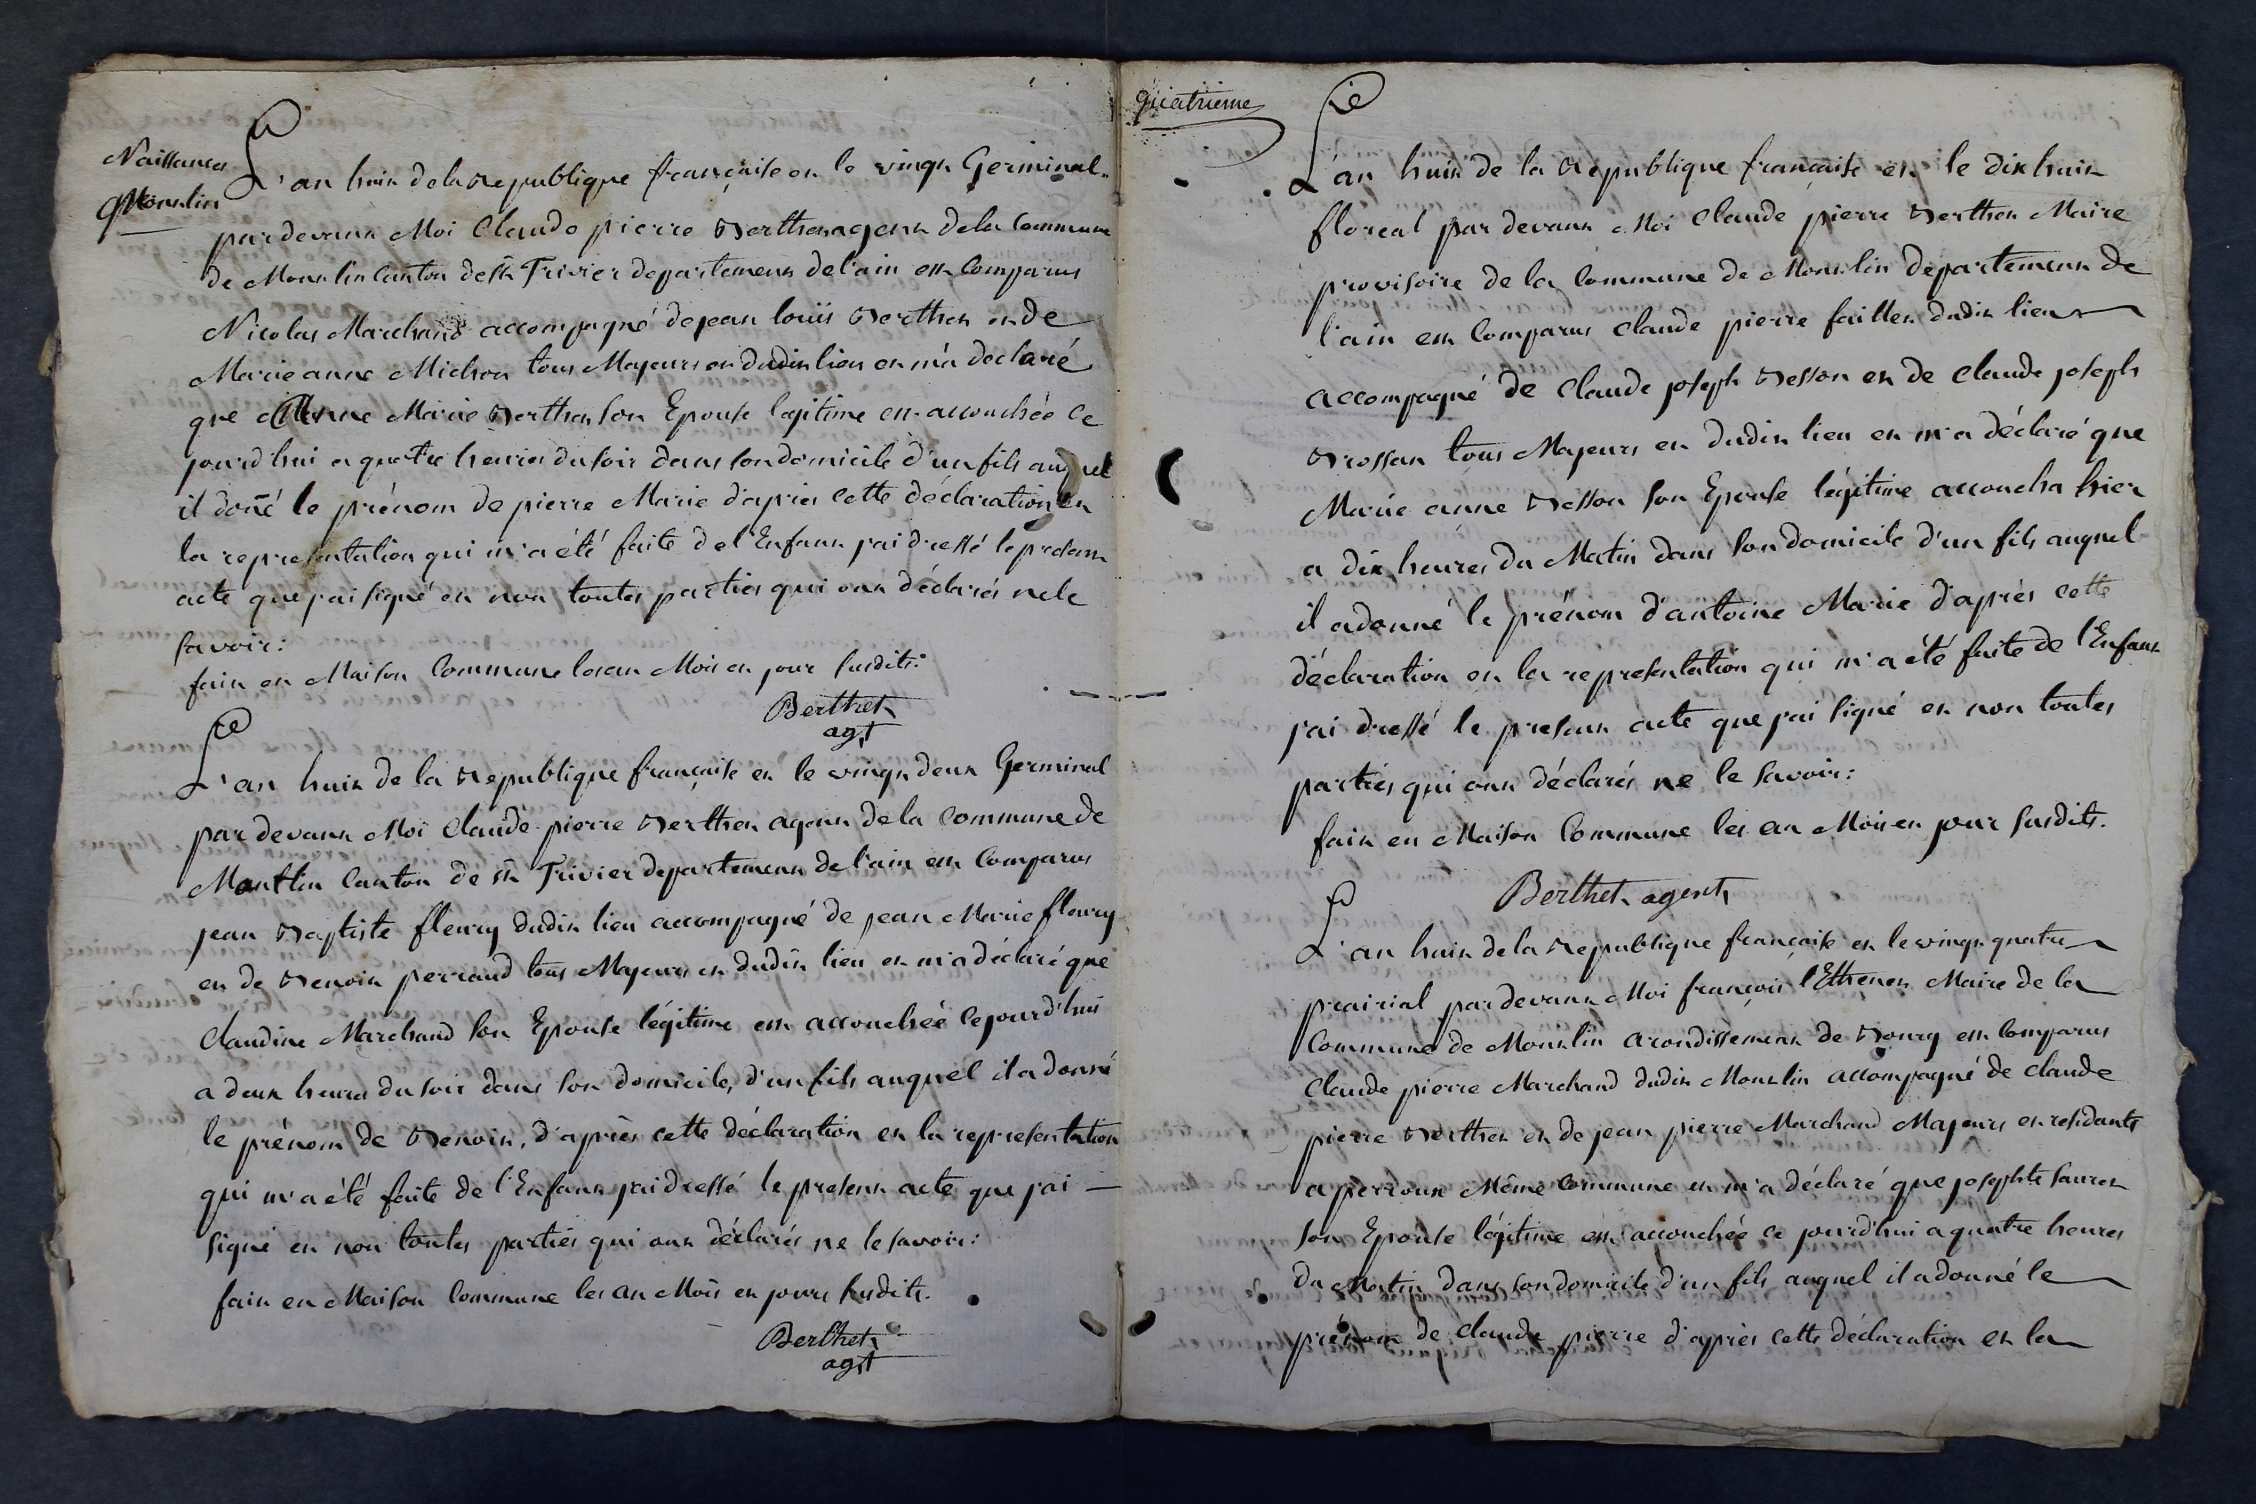 Naissances
Montlin
L'an huit de la Republique française et le vingt Germinal
pardevant Moi Claude pierre Berthet agent de la Commune
de Montlin Canton de st Trivier departement de l'ain est Comparus
Nicolas Marchand accompagné de jean louïs Berthet et de
Marie anne Michon tous Majeurs et dudit lieu et m'a declaré
que Anne Marie Berthet son Epouse legitime est accouchée ce
jourd'hui a quatre heures du soir dans son domicile d'un fils auquel
il doñé le prénom de pierre Marie d'après cette déclaration et
la representation qui m'a été faite de l'Enfant j'ai dressé le present
acte que j'ai signé et non toutes parties qui ont déclarés ne le
savoir:
fait en Maison Commune les an Mois et jour susdits:
Berthet
agt
L'an huit de la Republique française et le vingt deux Germinal
par devant Moi Claude pierre Berthet agent de la Commune de
Montlin Canton de st Trivier departement de l'ain est Comparus
jean Baptiste fleury dudit lieu accompagné de jean Marie fleury
et de Benoit perraud tous Majeurs et dudit lieu et m'a déclaré que
Claudine Marchand son Epouse légitime est accouchée cejourd'hui
a deux heures du soir dans son domicile, d'un fils auquel il a donné
le prénom de Benoit, d'après cette déclaration et la representation
qui m'a été faite de l'Enfant j'ai dressé le present acte que j'ai —
signé et non toutes parties qui ont déclarés ne le savoir:
fait en Maison Commune les an Mois et jours susdits.
Berthet
agt
quatrieme
L'an huit de la Republique française et le dix huit
floreal par devant Moi Claude pierre Berthet Maire
provisoire de la Commune de Montlin departement de
l'ain est Comparus Claude pierre faillet dudit lieu
accompagné de Claude joseph Besson et de Claude joseph
Brossat tous Majeurs et dudit lieu et m'a déclaré que
Marie anne Besson son Epouse légitime accoucha hier
a dix heures du Matin dans son domicile d'un fils auquel
il a donné le prénom d'antoine Marie d'après cette
déclaration et la representation qui m'a été faite de l'Enfant
j'ai dressé le present acte que j'ai signé et non toutes
parties qui ont déclarés ne le savoir:
fait en Maison Commune les an Mois et jour susdits.
Berthet agent
L'an huit de la Republique française et le vingt quatre
prairial pardevant Moi françois l'Ethenet Maire de la
Commune de Montlin arondissement de Bourg est Comparus
Claude pierre Marchand dudit Montlin accompagné de Claude
pierre Berthet et de jean pierre Marchand Majeurs et residants
a perroux Même Commune et m'a déclaré que josephte
son Epouse légitime est accouchée ce jourd'hui a quatre heures
du Matin dans son domicile d'un fils auquel il a donné le
prénom de Claude pierre d'après cette déclaration et la